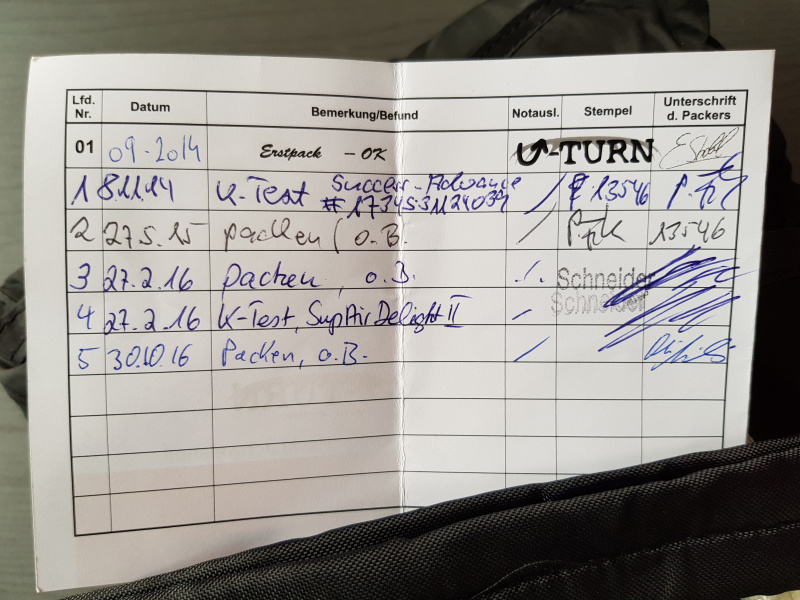 Lfd. Nr. Datum Bemerkung/Befund Notausl. Stempel Unterschrift d. Packers
01 09-2014 Erstpack - OK U-TURN
1 8.11.14 K-Test Success-Advance # P 13546
2 27.5.15 packen, o.B. 13546
3 27.2.16 packen, o.B. ./. Schneider
Schneider
4 27.2.16 K-Test, SupAir Delight II
5 30.10.16 Packen, o.B.